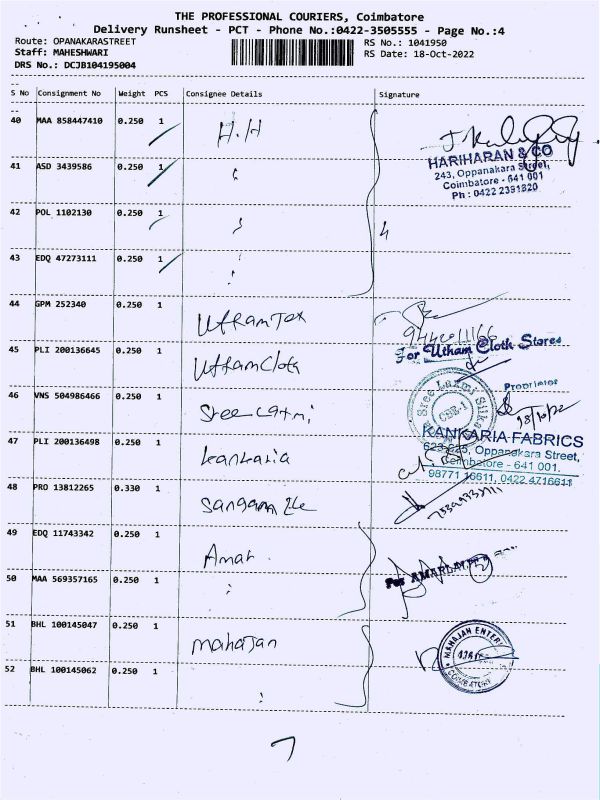 THE PROFESSIONAL COURIERS, Coimbatore
Delivery Runsheet - PCT - Phone No.:0422-3505555 - Page No.:4
Route: OPANAKARASTREET
RS No.: 1041950
Staff: MAHESHWARI
RS Date: 18-Oct-2022
DRS No.: DCJB104195004
S No Consignment No Weight PCS Consignee Details Signature
40 MAA 858447410 0.250 1 H.H
HARIHARAN & CO
243, Oppanakara Street,
Coimbatore - 641 001
Ph : 0422 2391820
41 ASD 3439586 0.250 1
42 POL 1102130 0.250 1
4
43 EDQ 47273111 0.250 1
44 GPM 252340 0.250 1 UthamTex
45 PLI 200136645 0.250 1 UthamCloth
For Utham Cloth Stores
Proprietor
46 VNS 504986466 0.250 1 Sree Laxmi
Sree Laxmi Silks
CBE-1
47 PLI 200136498 0.250 1 Kankaria
KANKARIA FABRICS
623-625, Oppanakara Street,
Coimbatore - 641 001.
98771 16611, 0422 4716611
48 PRO 13812265 0.330 1
49 EDQ 11743342 0.250 1 Amar.
For
50 MAA 569357165 0.250 1
51 BHL 100145047 0.250 1 mahajan
MAHAJAN ENTER
COIMBATORE
52 BHL 100145062 0.250 1
7